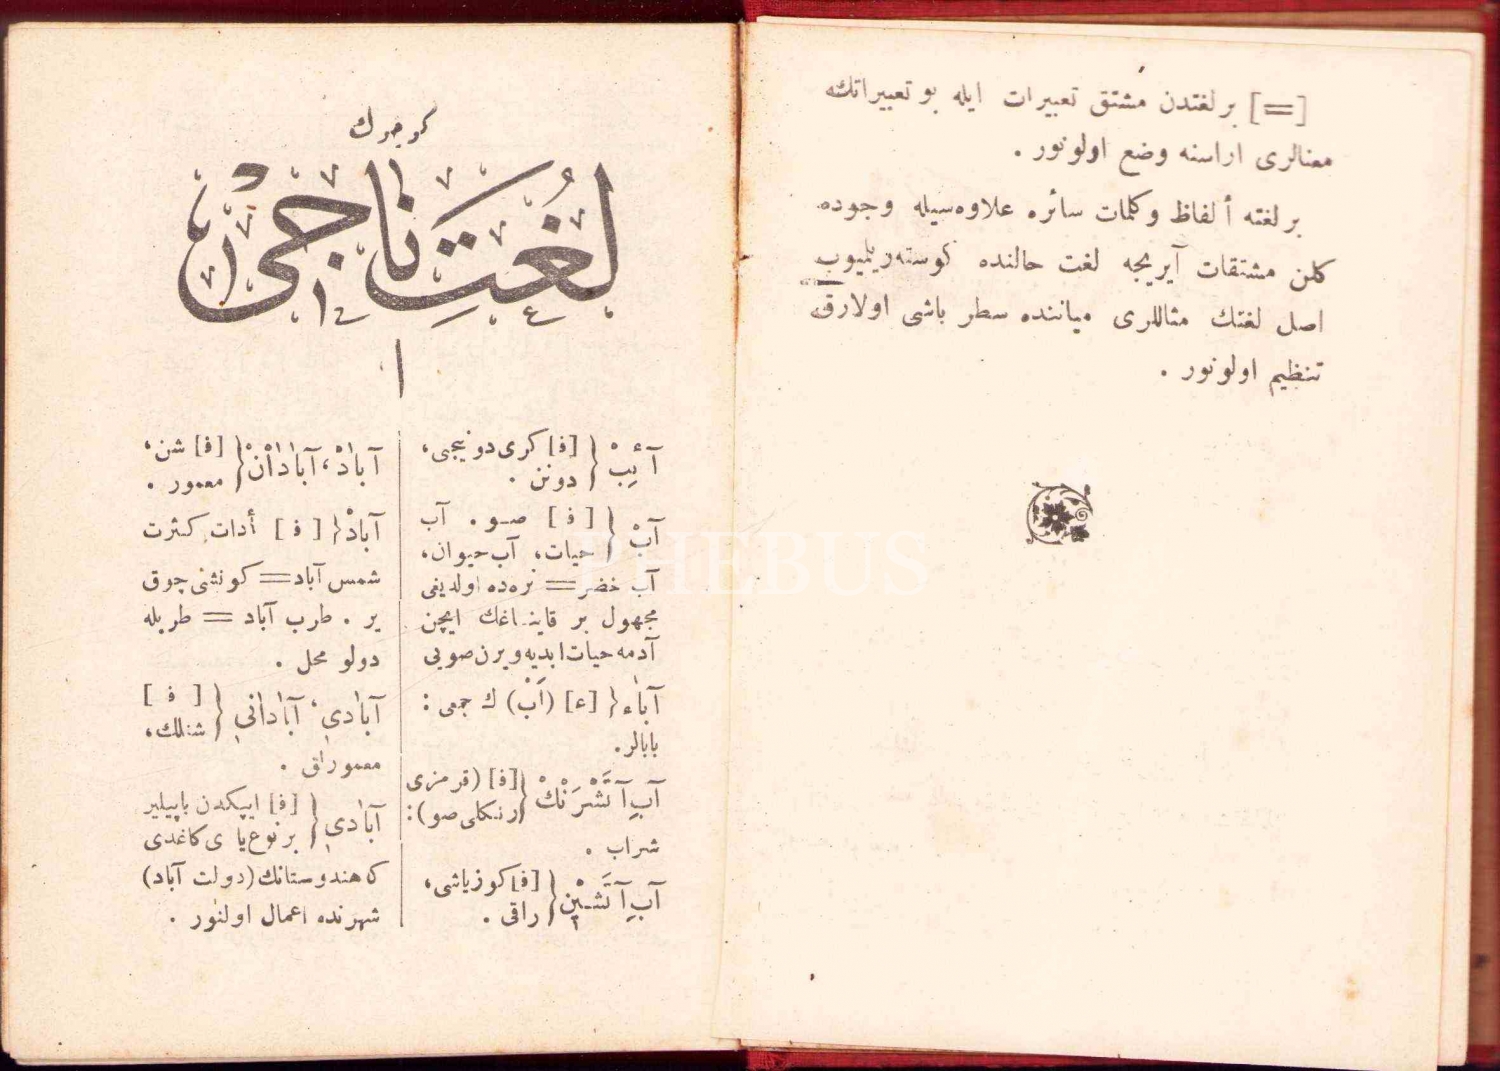 [=] بر لغتدن مشتق تعبيرات ايله بو تعبيراتك
معنالرى اراسنه وضع اولونور .
بر لغته ألفاظ وكلمات سائره علاوه‌سيله وجوده
كلن مشتقات آيريجه لغت حالنده كوسته‌ريليوب
اصل لغتك مثاللرى مياننده سطر باشى اولارق
تنظيم اولونور .
كوجوك
لُغتِ ناجى
ا
آئِبْ { [ف] كرى دونيجى،
دونن .
آبْ { [ف] صو . آب
حيات، آب حيوان،
آب خضر = نره‌ده اولديغى
مجهول بر قايناغك ايچن
آدمه حيات ابديه ويرن صويى
آباء { [ع] (اَبْ) ك جمعى :
بابالر.
آبِ آتَشْرَنْكْ { [ف] (قرمزى
رنكلى صو) :
شراب .
آبِ آتَشين { [ف] كوز ياشى،
راقى .
آبادْ، آبادانْ { [ف] شن،
معمور .
آبادْ { [ف] أدات كثرت
شمس آباد = كونشى چوق
ير . طرب آباد = طربله
دولو محل .
آبادى، آبادانى { [ف]
شنلك،
معمورلق .
آبادى { [ف] ايپكدن ياپيلير
بر نوع ياى كاغدى
كه هندوستانك (دولت آباد)
شهرنده اعمال اولنور .
PHEBUS